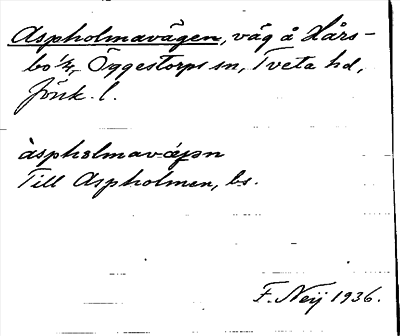 Aspholmavägen, väg å Hårs-
bo 1/4, Öggestorps sn, Tveta hd,
Jönk. l.
Till Aspholmen, bs.
F. Neij 1936.